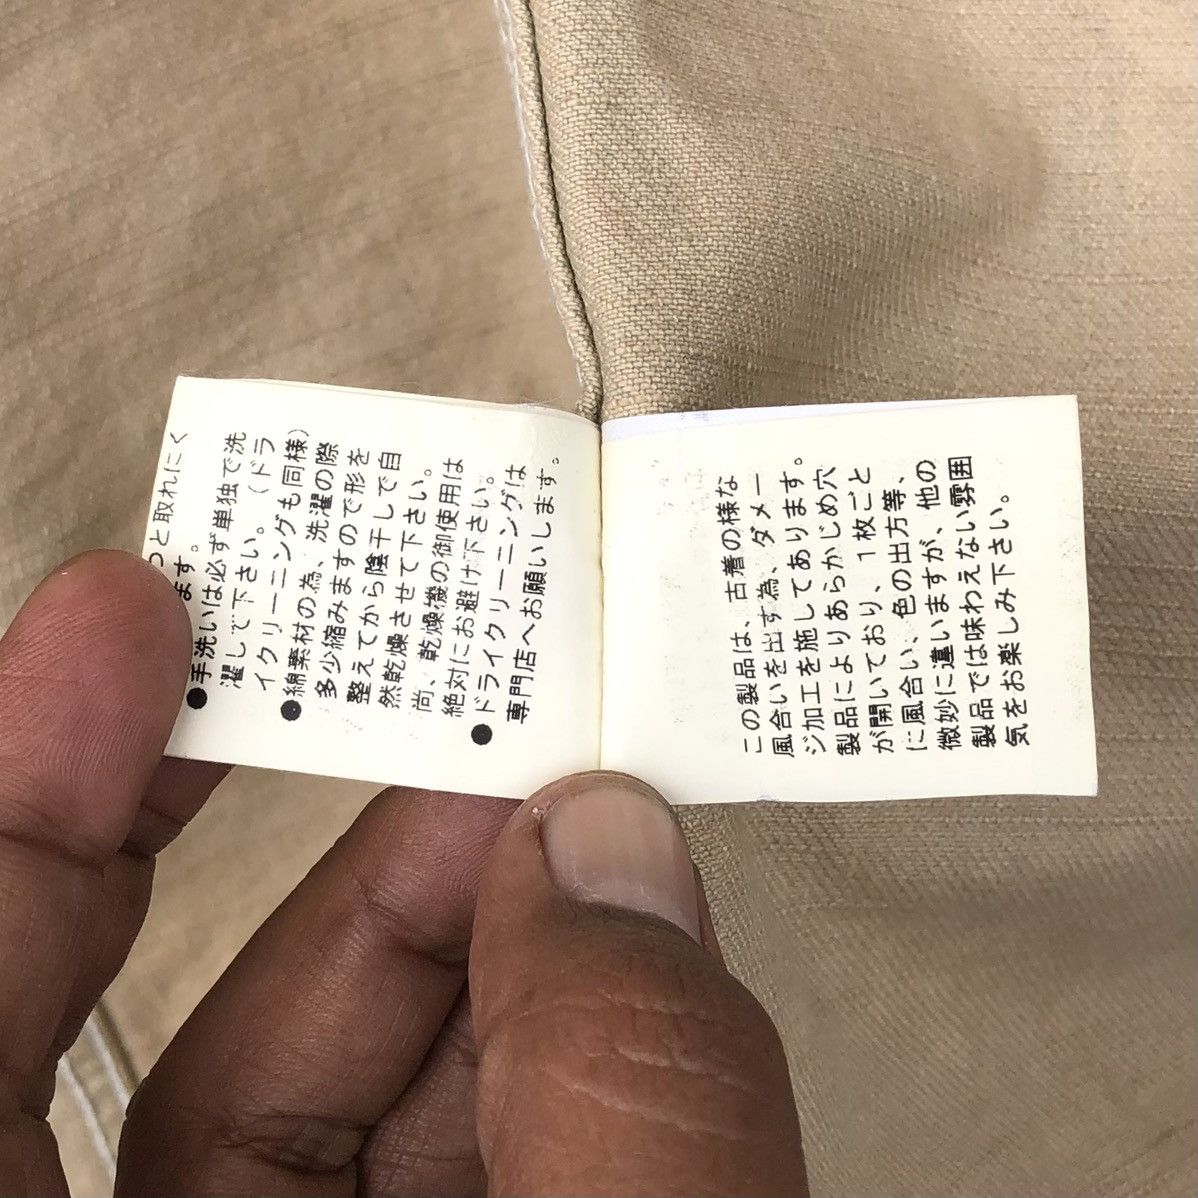 っと取れにく
ます。
●手洗いは必ず単独で洗
濯して下さい。（ドラ
イクリーニングも同様）
●綿素材の為、洗濯の際
多少縮みますので形を
整えてから陰干しで自
然乾燥させて下さい。
尚、乾燥機の御使用は
絶対にお避け下さい。
●ドライクリーニングは
専門店へお願いします。
この製品は、古着の様な
風合いを出す為、ダメー
ジ加工を施してあります。
製品によりあらかじめ穴
が開いており、1枚ごと
に風合い、色の出方等、
微妙に違いますが、他の
製品では味わえない雰囲
気をお楽しみ下さい。